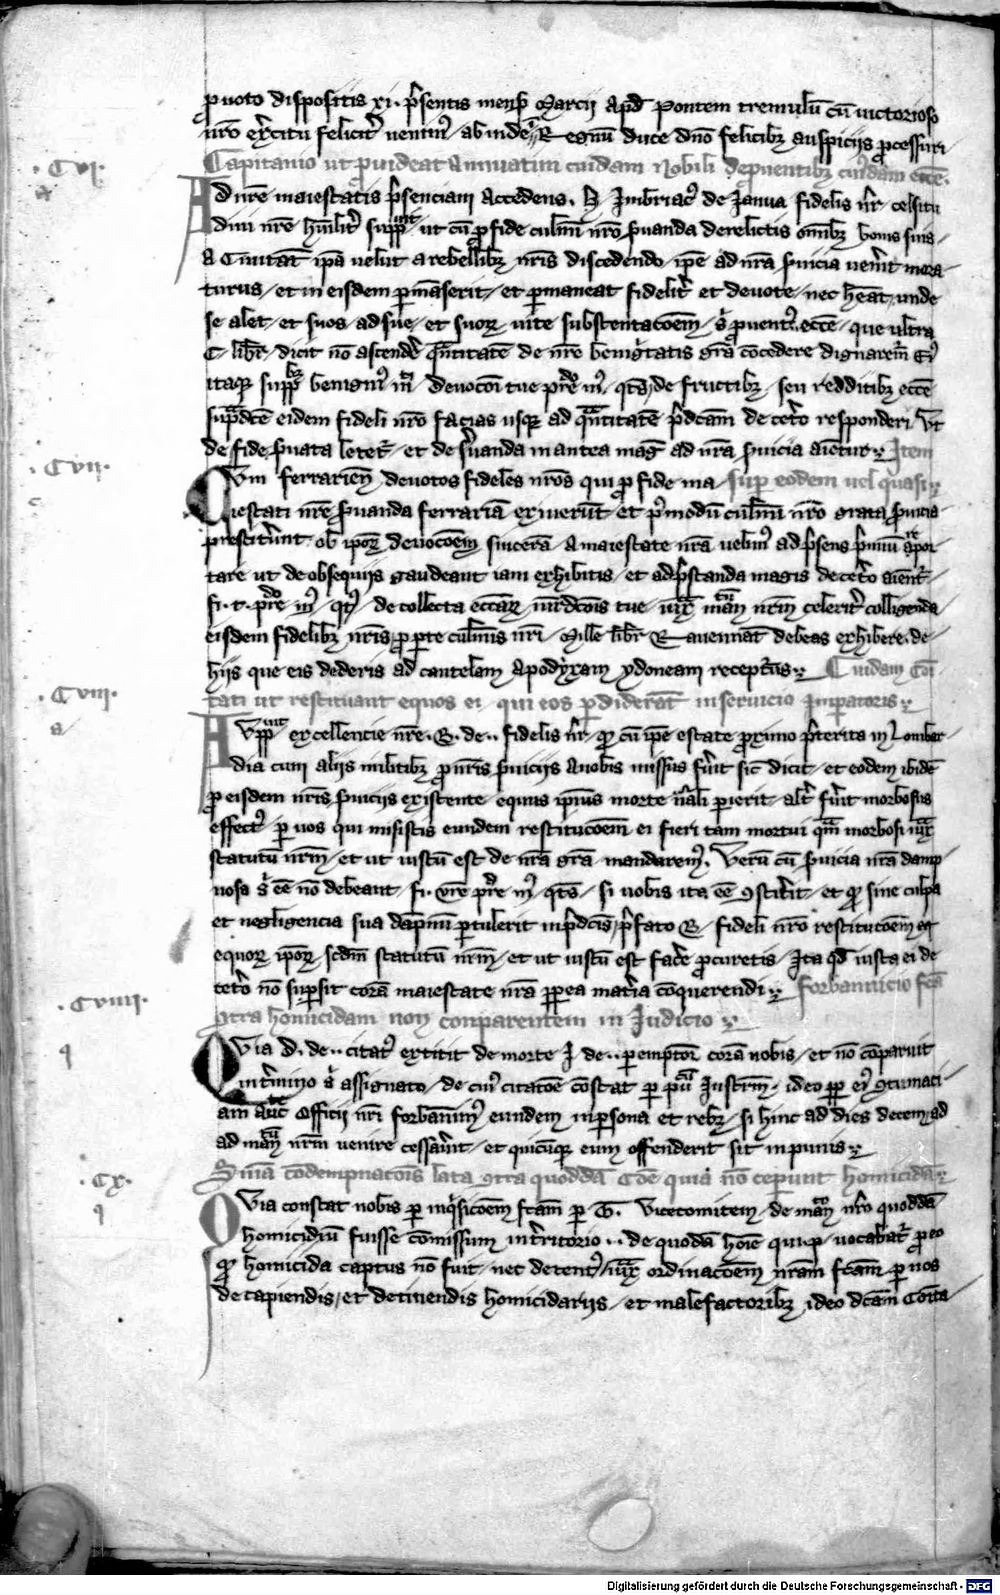 p uoto dispositis xi. p̄sentis mens̄ Marcii apd̄ Pontem tremulū cū uictorioso
nr̄o ex̄citu felicit̄ uenim⁹ / ab inde Regnū duce dn̄o felicibꝫ auspiciis ꝓcessuri
Capitanio ut ꝓuideat annuatim cuidam nobili de puentibꝫ cui⁹dam ecc̄e.
· CVI·
Ad nr̄e maiestatis p̄senciam accedens . H Imbriac̄ de Janua fidelis nr̄ . celsitu
dini nr̄e hūilit̄ supp̄ ut cū ꝓ fide culmī nr̄o ẜuanda derelictis om̄ibꝫ bonis suis
a Ciuitat̄ ip̄a uelut a rebellibꝫ nr̄is discedendo / ip̄e ad nr̄a ẜuicia uen̄it mora
turus / et in eisdem ꝑmāserit / et ꝑmaneat fidelit̄ et deuote / nec hēat unde
se alet / et suos ad sue / et suoꝝ uite substentac̄oem / ꝓuent⁹ ecc̄e / que ultra
C. libr̄ . dicit̄ nō ascend̄e q̄ntitatē de nr̄e beniḡtatis gr̄a cōcedere dignarem̄ Ei⁹
itaqꝫ supp̄ benigni⁹ deuoc̄oi tue p̄r̄e . de fructibꝫ / seu redditibꝫ ecc̄e
sup̄dc̄e eidem fideli nr̄o facias usqꝫ ad q̄ntitatē p̄dc̄am de cet̄o responderi Vt
de fide ẜuata letet̄ / et de ẜuanda in antea maḡ ad nr̄a ẜuicia aīetur Item
· CVII·
Cum ferrarien̄ deuotos fideles nr̄os qui ꝓ fide ma / sup̄ eodem uel quasi
iestati nr̄e ẜuanda ferrariā exiuerūt / et p̄modū culmī nr̄o grata ẜuicia
prestit̄unt . ob ip̄oꝝ deuoc̄oem sincerā / a maiestate nr̄a uelim⁹ ad p̄sens p̄miū apor
tare ut de obsequiis gaudeant iam exhibitis / et ad p̄standa magis de cet̄o aīent̄
fi. t. p̄r̄e . de collecta ecc̄aꝝ iur̄dc̄ois tue / iux̄ mān̄ nr̄m celerit̄ colligenda
eisdem fidelibꝫ nr̄is ꝓ ꝑte culminis nr̄i / Mille libr̄ Rauennat̄ debeas exhibere . de
hiis que eis dederis ad cautelam apodyxam ydoneam recept̄us Cuidam Cōi
· CVIII·
tati ut restituant equos ei / qui eos ꝑdiderat̄ in seruicio Imperatoris
Supp̄ excellencie nr̄e . G. de .. fidelis nr̄ . q̄ cū ip̄e estate ꝓximo p̄terita in Lombar
dia cum aliis militibꝫ ꝓ nr̄is ẜuiciis a uobis missus fu̅it sic̄ dicit / et eodem ibidē
ꝓ eisdem nr̄is ẜuiciis existente / equus ip̄ius morte nāli perierit / alt̄ fu̅it morbosus
effect⁹ / ꝑ uos qui misistis eundem restituc̄oem ei fieri tam mortui qm̄ morbosi iux̄
statutū nr̄m / et ut iustū est de nr̄a gr̄a mandarem⁹. Verū cū ẜuicia nr̄a damp
nosa ēē nō debeant / fi. vr̄e p̄r̄e . si uobis ita ēē 9stit̄it . et q̄ sine culpa
et negligencia sua dāpnū ꝑtulerit in p̄dc̄is / p̄fato G. fideli nr̄o restituc̄oem
equoꝝ ip̄oꝝ / sc̄dm statutū nr̄m / et ut iustū est fac̄e ꝓcuretis / Ita qd̄ iusta ei de
cet̄o nō sup̄sit corā maiestate nr̄a ꝓpt̄ea mat̄ia cōquerendi Forbannicio
· CVIIII·
9tra homicidam non conparentem in Judicio
Quia D. de .. citat⁹ extitit de morte J. de .. peremptor̄ corā nobis / et nō cōparuit
in t̄mino assignato / de cui⁹ citatōe cōstat ꝑ Instrm̄ / ideo ꝓpt̄ ei⁹ 9tumaci
am auc̄te Officii nr̄i forbannim⁹ eundem in persona et rebꝫ / si hinc ad dies decem / ad
ad mān̄ nr̄m uenire cessau̅it / et quicūqꝫ eum offenderit sit inpunis
Sn̄ia cōdempnac̄ois lata 9tra quoddā Cōe quia nō ceperunt homicidā
· CX·
Quia constat nobis ꝑ inq̄sic̄oem fc̄am ꝑ G. Vicecomitem / de mān̄ nr̄o quoddā
homicidiū fuisse cōmissum in t̄ritorio .. de quodā hoīe qui p̄ . uocabat̄ ꝓ eo
q̄ homicida captus nō fuit / nec detent⁹ / iux̄ ordinac̄oem nr̄am fc̄am ꝑ nos
de capiendis / et detinendis homicidariis / et malefactoribꝫ ideo dc̄am Cōita
Digitalisierung gefördert durch die Deutsche Forschungsgemeinschaft · DFG